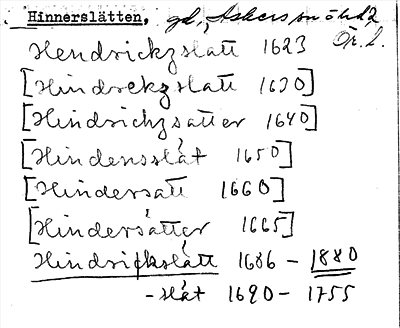 Hinnerslätten, gd, Askers sn o hd,
Ör. l.
Hendrickzslatt 1623
[Hindrekzslatt 1630]
[Hindrichzsatter 1640]
[Hindensslåt 1650]
[Hindersatt 1660]
[Hindersåtter 1665]
Hindrikslått 1686 – 1880
– slåt 1690 – 1755